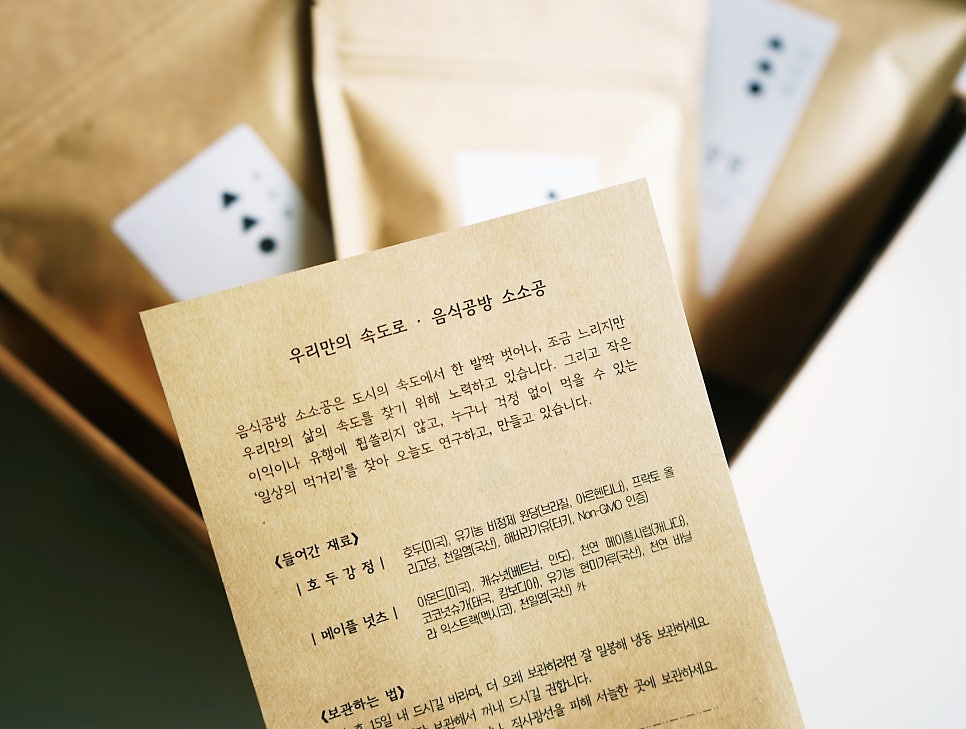 우리만의 속도로 · 음식공방 소소공
음식공방 소소공은 도시의 속도에서 한 발짝 벗어나, 조금 느리지만
우리만의 삶의 속도를 찾기 위해 노력하고 있습니다. 그리고 작은
이익이나 유행에 휩쓸리지 않고, 누구나 걱정 없이 먹을 수 있는
'일상의 먹거리'를 찾아 오늘도 연구하고, 만들고 있습니다.
《들어간 재료》
| 호 두 강 정 |
호두(미국), 유기농 비정제 원당(브라질, 아르헨티나), 프락토 올
리고당, 천일염(국산), 해바라기유(터키, Non-GMO 인증)
| 메이플 넛츠 |
아몬드(미국), 캐슈넛(베트남, 인도), 천연 메이플시럽(캐나다),
코코넛슈가(태국, 캄보디아), 유기농 현미가루(국산), 천연 바닐
라 익스트랙(멕시코), 천일염(국산) 外
《보관하는 법》
후 15일 내 드시길 바라며, 더 오래 보관하려면 잘 밀봉해 냉동 보관하세요.
보관해서 꺼내 드시길 권합니다.
직사광선을 피해 서늘한 곳에 보관하세요.